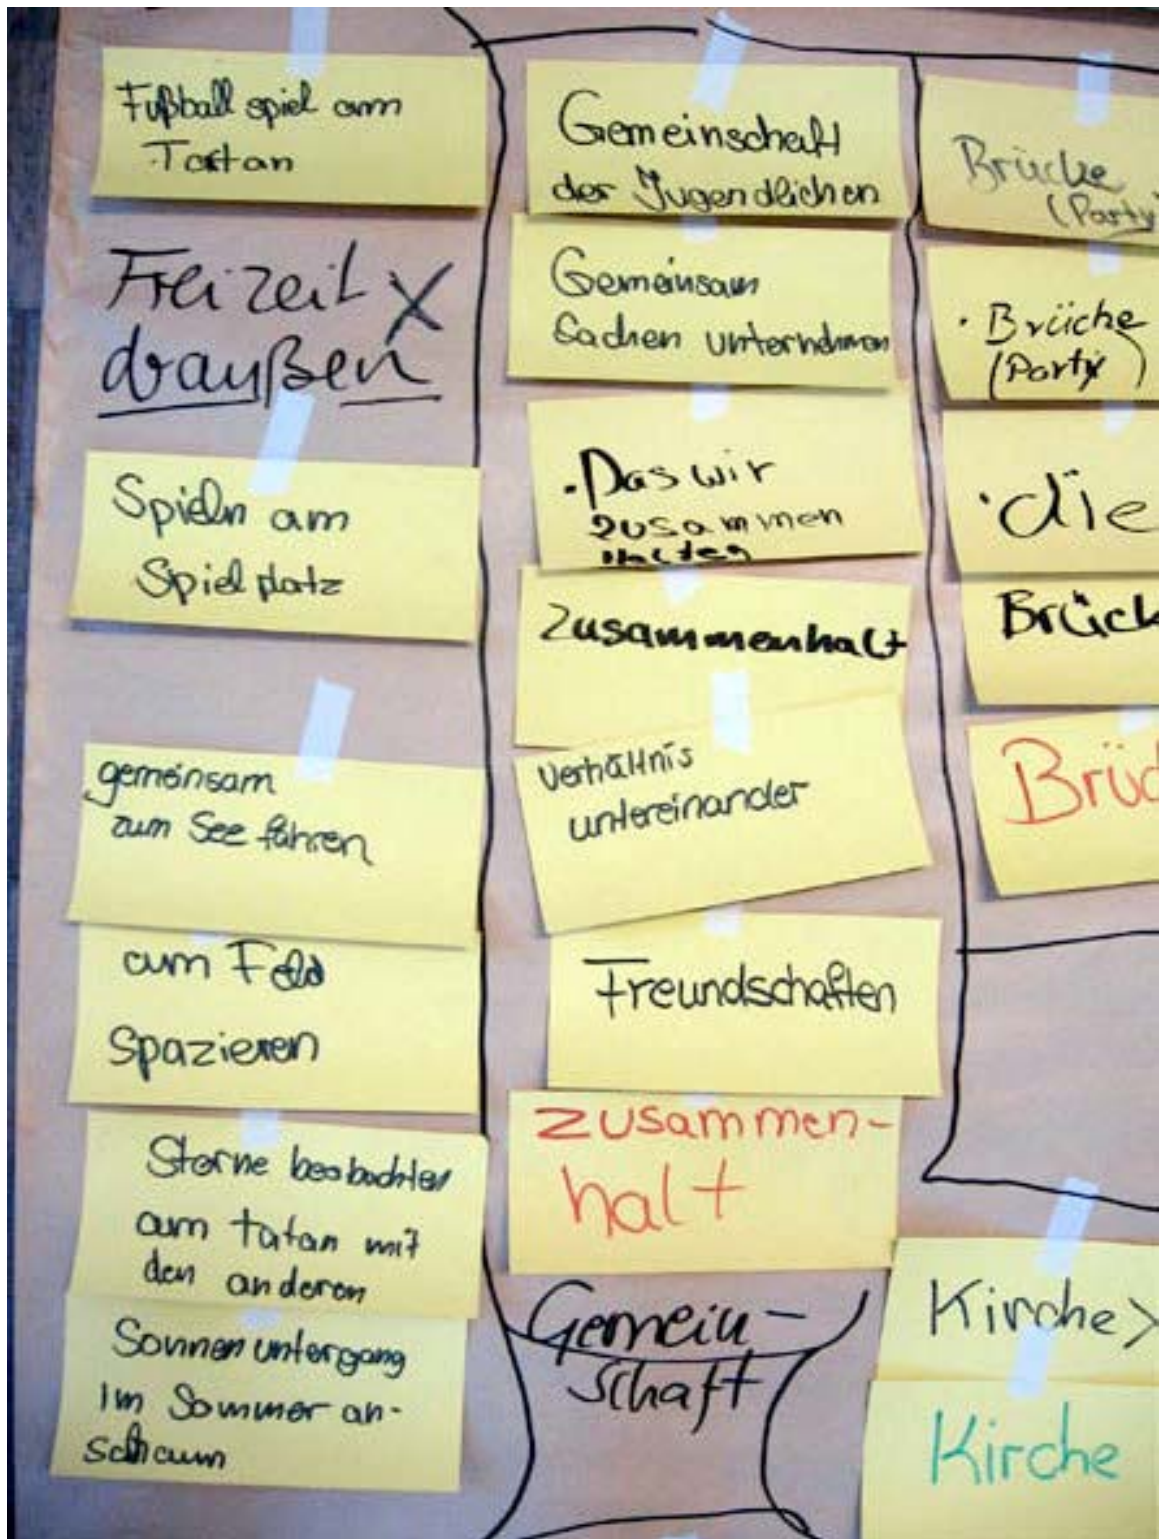 Fußball spiel am
Tartan
Freizeit X
draußen
Spieln am
Spielplatz
gemeinsam
zum See fahren
am Feld
spazieren
Sterne beobachten
am tatan mit
den anderen
Sonnenuntergang
im Sommer an-
schaun
Gemeinschaft
der Jugendlichen
Gemeinsam
Sachen unternehmen
. Das wir
zusammen
halten
Zusammenhalt
Verhältnis
untereinander
Freundschaften
zusammen-
halt
Gemein-
schaft
Brücke
(Party)
. Brücke
(Party)
. die
Brück
Brüc
Kirche >
Kirche